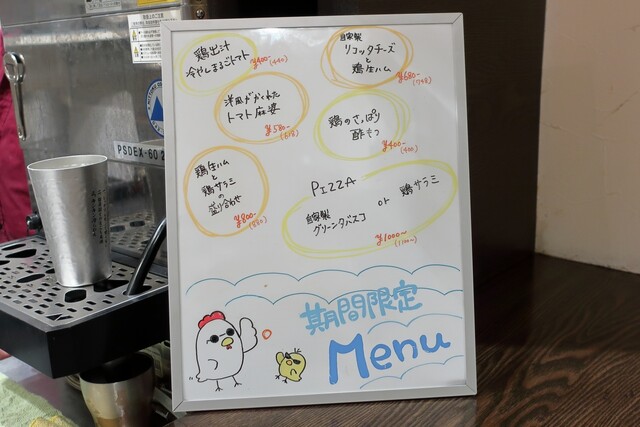 鶏出汁
冷やしまるごトマト
¥400-
(440)
自家製
リコッタチーズ
と
鶏生ハム
¥680-
トマト麻婆
¥580-
(638)
鶏のさっぱり
酢もつ
¥400-
鶏生ハム
と
鶏サラミ
の
盛り合わせ
¥800-
(880)
PIZZA
自家製
グリーンタバスコ
or
鶏サラミ
¥1000~
(1100~)
期間限定
Menu
PSDEX-60